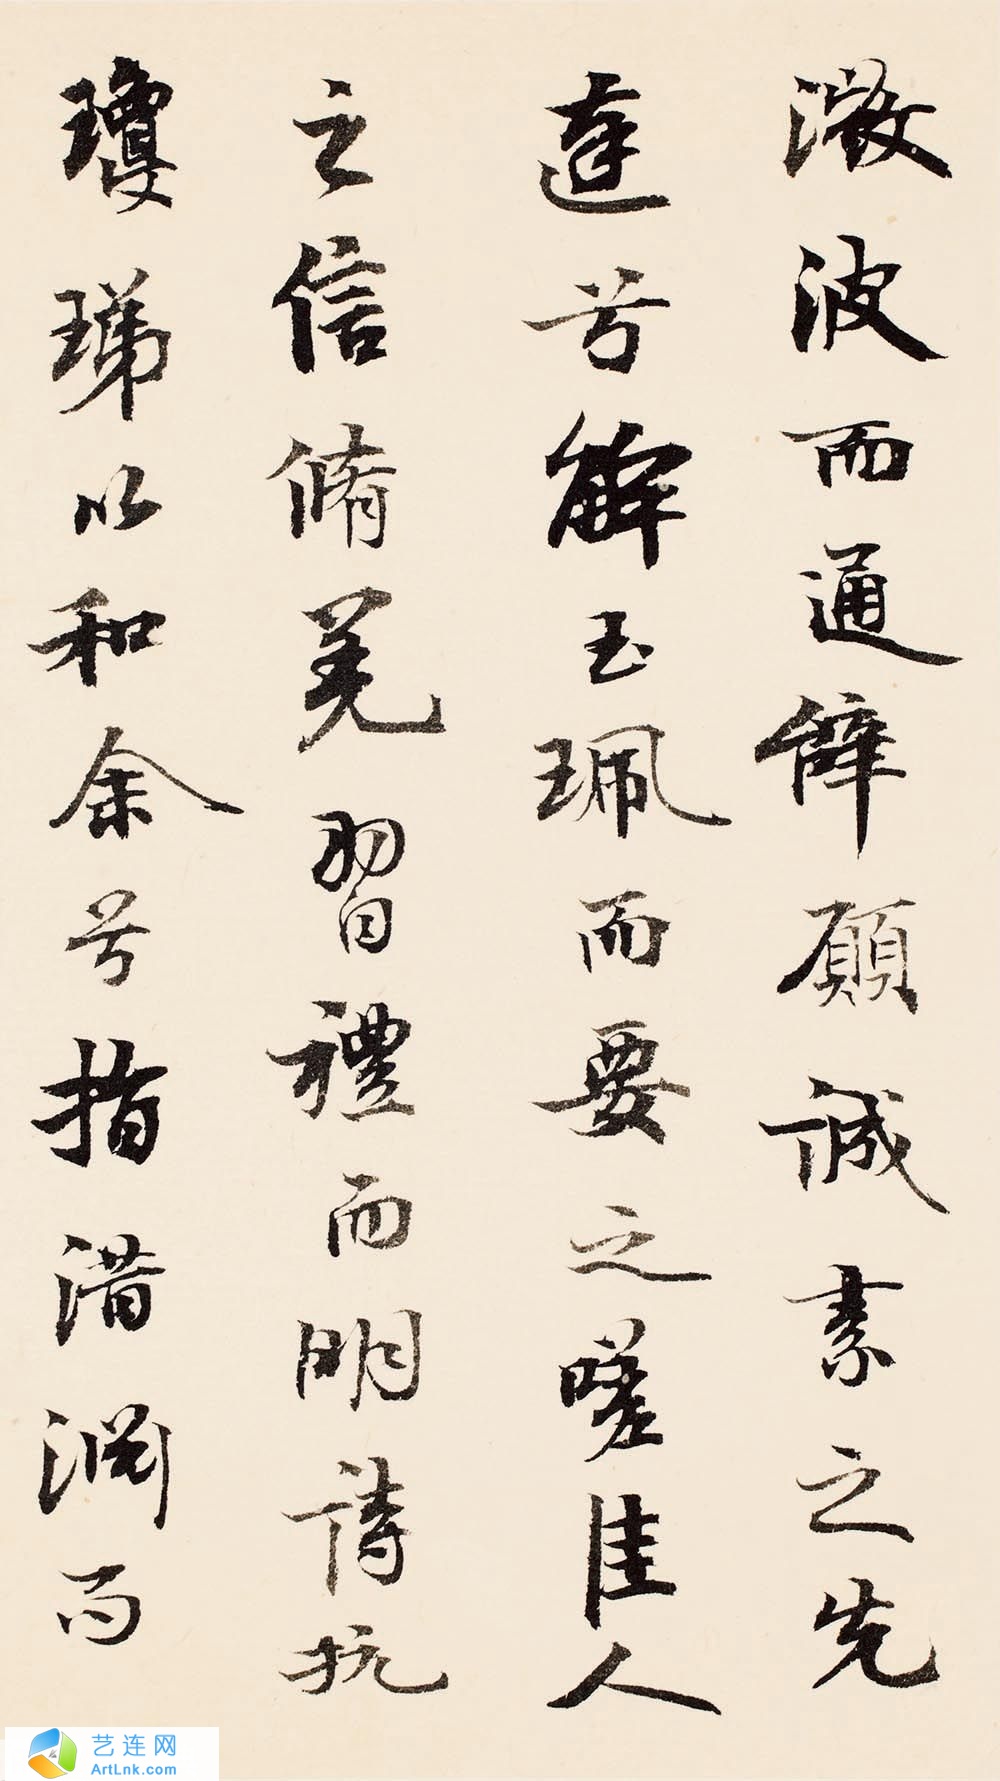 激波而通辞願誠素之先
達兮解玉珮而要之嗟佳人
之信脩羌習禮而明詩抗
瓊珶以和余兮指潛淵而
艺连网
ArtLnk.com